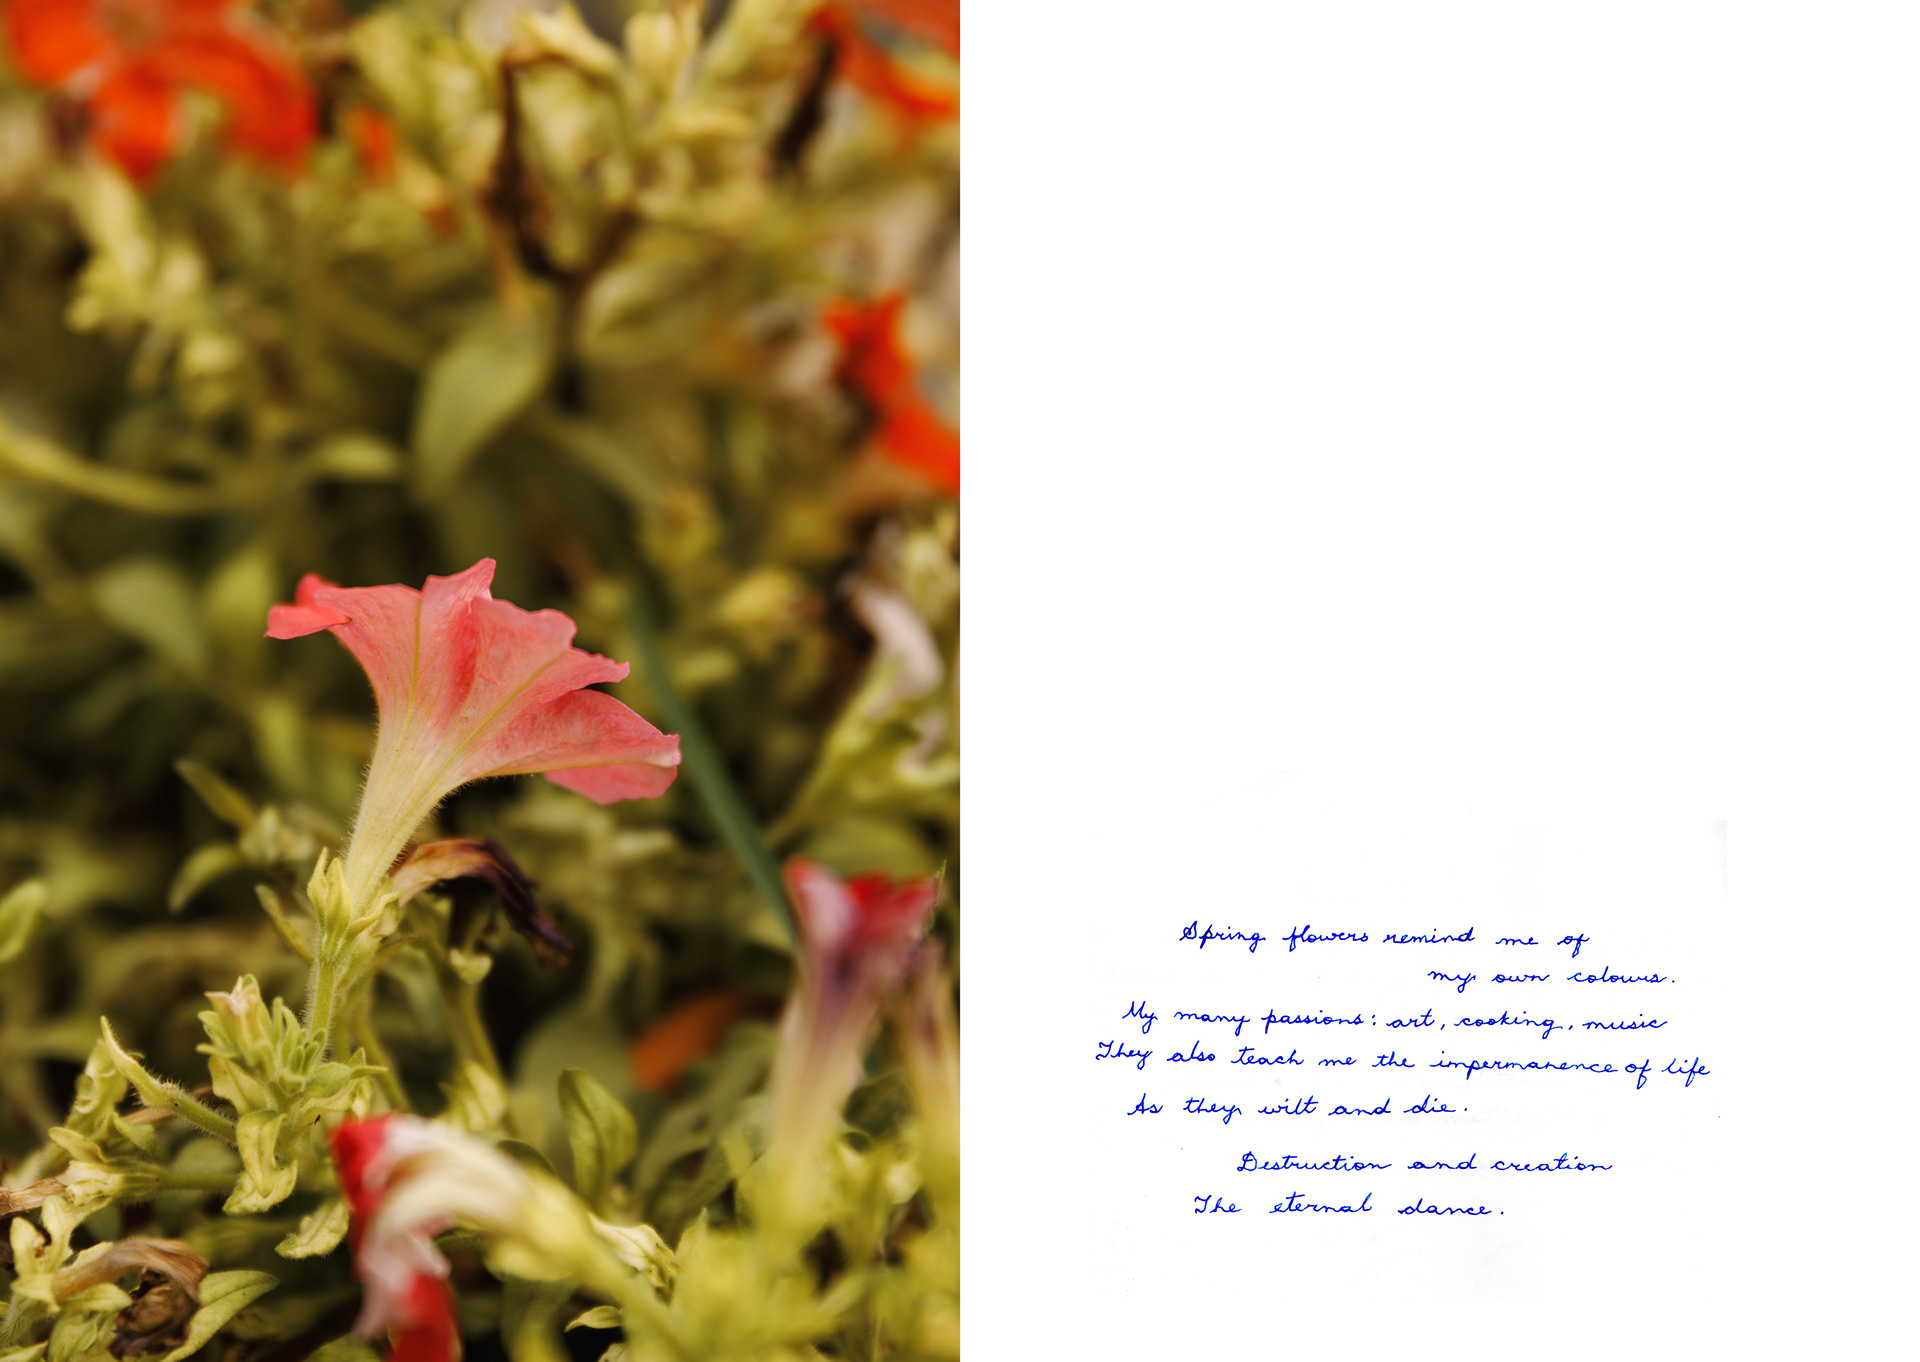 Spring flowers remind me of
my own colours.
My many passions: art, cooking, music
They also teach me the impermanence of life
As they wilt and die.
Destruction and creation
The eternal dance.